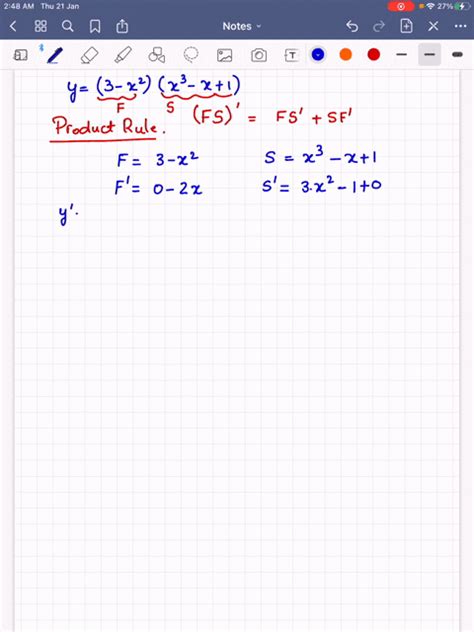 2:48 AM Thu 21 Jan 27%
Notes
y = (3-x²) (x³-x+1)
F S (FS)' = FS' + SF'
Product Rule.
F = 3-x² S = x³-x+1
F' = 0-2x S' = 3.x²-1+0
y'.